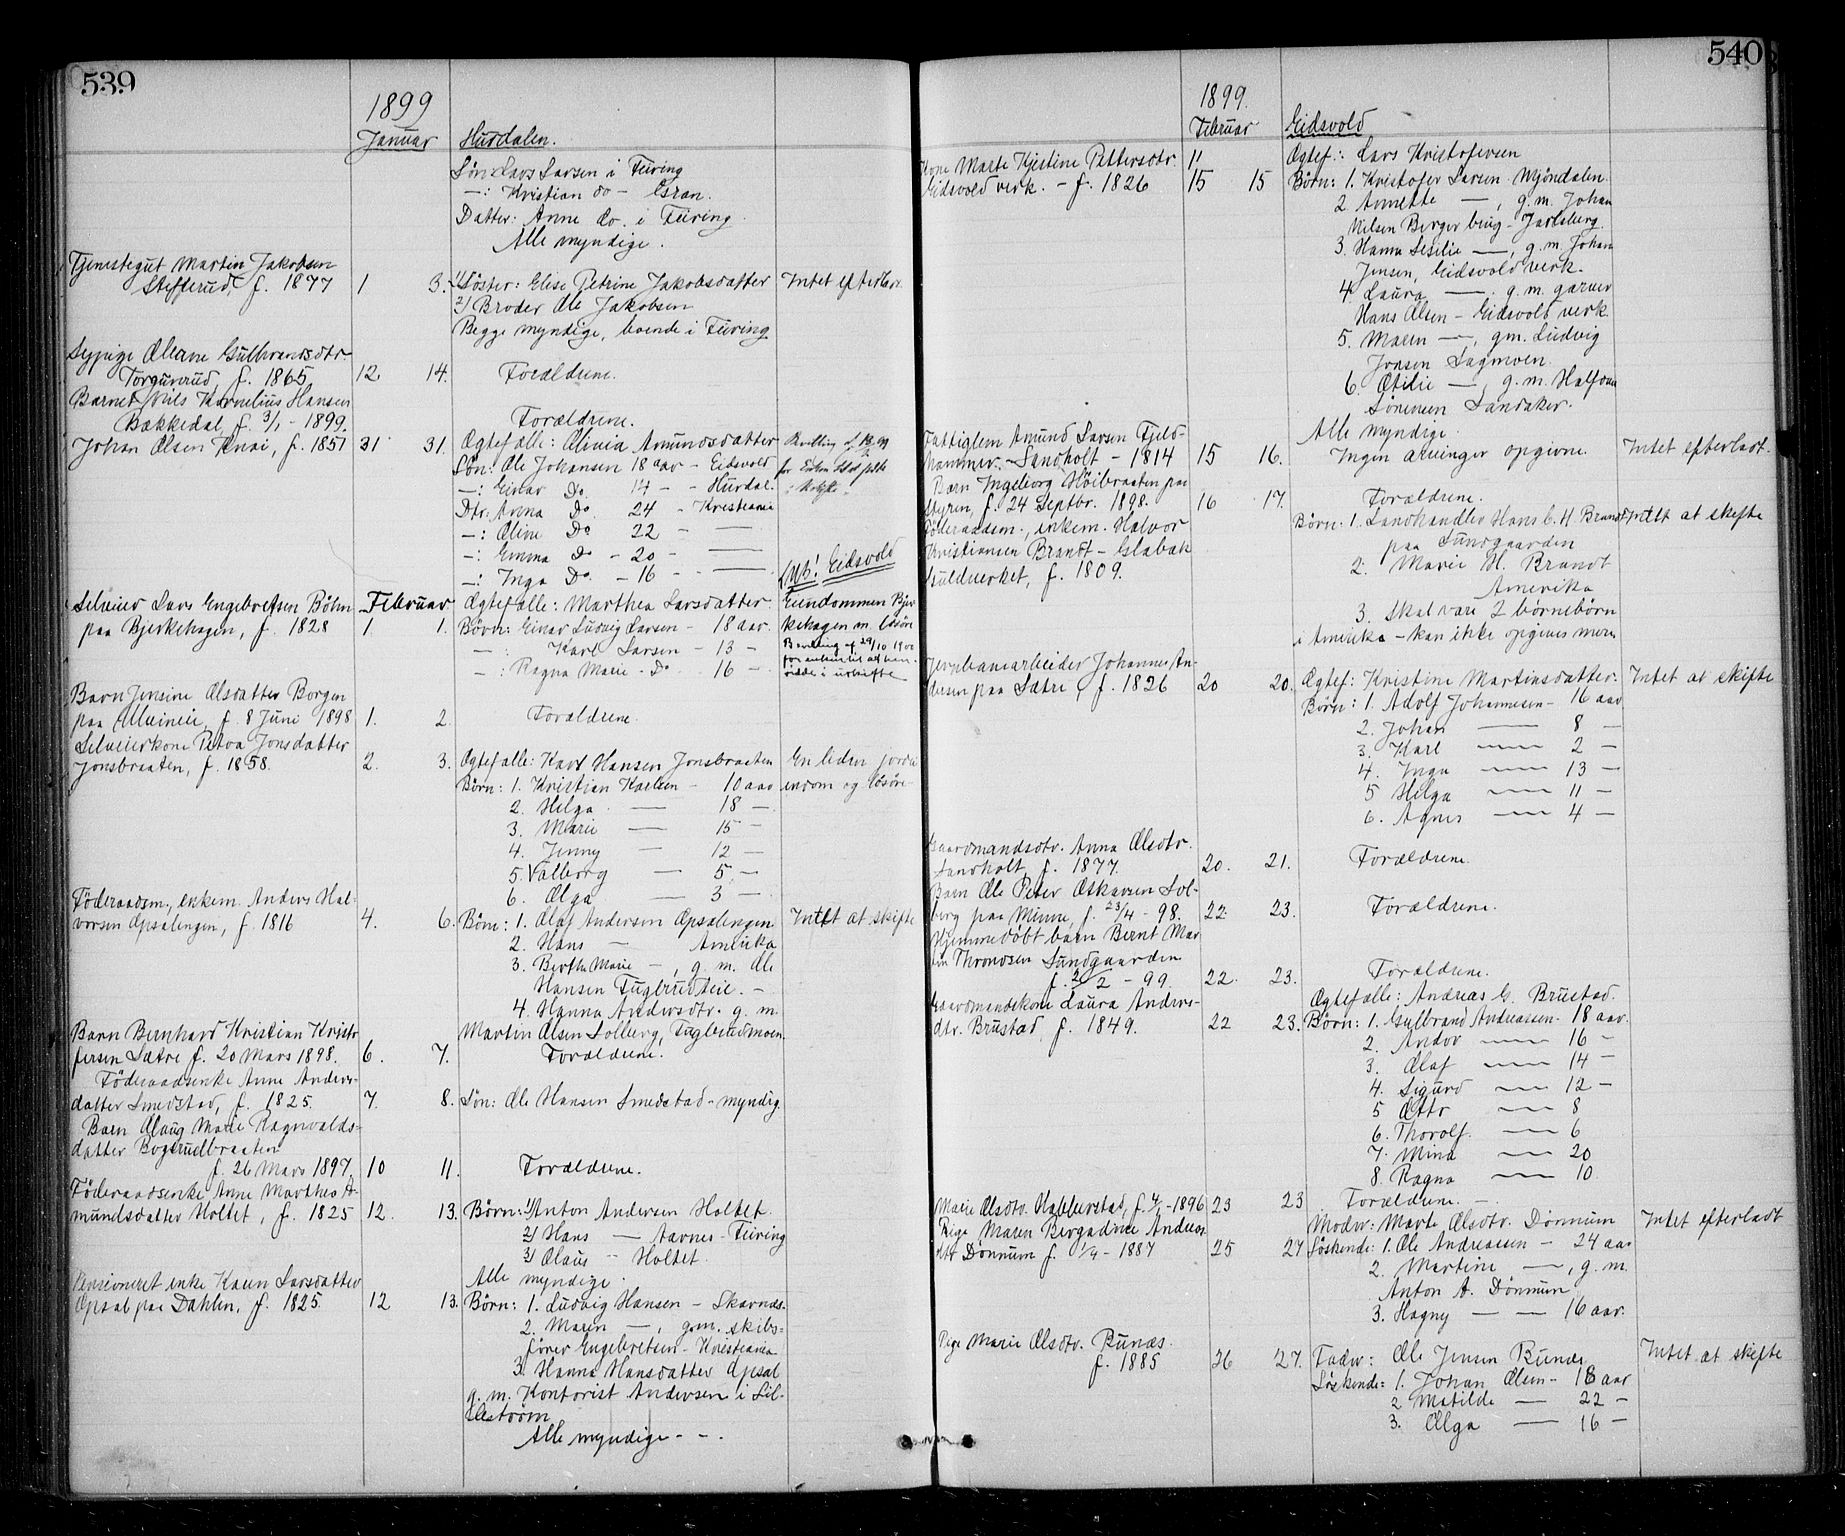 539
1899
Januar
Hurdalen.
Søn: Lars Larsen i Furing
—: Kristian do — Gran.
Datter: Anne do. i Furing.
Alle myndige.
Tjenestegut Martin Jakobsen
Stefferud, f. 1877 1 3.
1) Søster: Elise Petrine Jakobsdatter
Intet efterladt.
2) Broder Ole Jakobsen
Begge myndige, boende i Furing
Sypige Oleane Gulbrandsdtr
Torgunrud, f. 1865 12 14. Forældrene.
Barnet Nils Kornelius Hansen
Bækkedal, f. 3/1 - 1899. Forældrene.
Johan Olsen Knai, f. 1851 31 31. Ægtefælle: Olivia Amundsdatter
Søn: Ole Johansen 18 aar - Eidsvold
—: Einar Do. 14 - - Hurdal.
Dtr: Anna Do 24 - Kristiania
—: Oline Do 22 - —
—: Emma Do - 20 - —
—: Inga Do. - 16 - - —
Nb! Eidsvold
Selveier Lars Engebretsen Böhn
paa Bjerkehagen, f. 1828
Februar
1. 1.
Ægtefælle: Marthea Larsdatter
Børn: Einar Ludvig Larsen - 18 aar.
— : Karl Larsen - 13 —
— : Ragna Marie - Do 16 —
Eiendommen Bjer
kehagen m. løsøre
Bevilling af 29/10 1900
Barn Jensine Olsdatter Borgen
f. 8 Juni 1898 1. 2. Forældrene.
Selveierkone Petra Jonsdatter
Jonsbraaten, f. 1858. 2. 3. Ægtefælle: Karl Hansen Jonsbraaten
En liden jord-
eiendom og løsøre
Børn: 1. Kristian Karlsen - 10 aar
2. Helga — 18 —
3. Marie — 15 —
4. Jenny — 12 —
5. Valborg — 5 —
6. Olga — 3 —
Föderaadsm., enkem. Anders Hal-
vorsen Opsalengen, f. 1816 4. 6. Børn: 1. Olaf Andersen Opsalengen
Intet at skifte
2. Hans — Amerika
3. Berthe Marie —, g. m. Ole
Hansen Fuglerudeie. —
4. Hanna Andersdtr. g. m.
Martin Olsen Solberg, Fuglerudmoen.
Barn Bernhard Kristian Kristo
fersen Sætre f. 20 Mars 1898. 6. 7. Forældrene.
Föderaadsenke Anne Anders-
datter Smedstad, f. 1825. 7. 8. Søn: Ole Hansen Smedstad - myndig.
Barn Olaug Marie Ragnvalds-
datter Bogerudbraaten
f. 26 Mars 1897. 10 11. Forældrene.
Föderaadsenke Anne Marthea A-
mundsdatter Holtet, f. 1825 12. 13. Børn: 1) Anton Andersen Holtet.
2) Hans — Aarnes - Furing
3) Olaus — Holtet.
Alle myndige.
Pensioneret enke Karen Larsdatter
Opsal paa Dahlen, f. 1825. 12 13. Børn: 1. Ludvig Hansen - Skarnæs.
2. Maren —, g. m. skibs-
fører Engebretsen - Kristiania
3. Hanna Hansdatter Opsal
g. m. Kontorist Andersen i Lil-
lestrøm
Alle myndige - -.
540
1899.
Februar
Eidsvold
Kone Marte Kjestine Pettersdtr.
Eidsvold verk. - f. 1826 15 15
Ægtef.: Lars Kristofersen
Børn: 1. Kristofer Larsen Mjöndalen.
2 Annette —, g. m. Johan
Nilsen Berger brug - Jarlsberg.
3. Hanna Sesilie —, g. m. Johan
Jensen, Eidsvold verk.
4. Laura —. g. m. garver
Hans Olsen - Eidsvold verk
5. Maren —, gm. Ludvig
Jonsen Sagmoen.
6. Otilie —, g. m. Halfdan
Sørensen Sandaker.
Alle myndige.
Fattiglem Amund Larsen Fjeld-
hammer. - Sandholt - 1814 15 16. Ingen arvinger opgivne.
Intet efterladt.
Barn Ingeborg Höibraaten paa
Styren, f. 24 Septbr. 1898. 16 17. Forældrene.
Föderaadsm., enkem. Halvor
Kristiansen Brandt - Glabak
Guldverket, f. 1809.
Børn: 1. Landhandler Hans C. H. Brandt
paa Sundgaarden
Intet at skifte
2. Marie H. Brandt
Amerika
3. Skal være 2 børnebørn
i Amerika - kan ikke opgives mere
Jernbanearbeider Johannes An-
dersen paa Sætre, f. 1826 20 20. Ægtef: Kristine Martinsdatter.
Intet at skifte
Børn: 1. Adolf Johannesen - 16 aar
2. Johan — 8 —
3. Karl — 2 —
4. Inga — 13 —
5 Helga — 11 —
6. Agnes — 4 —
Gaardmandsdtr. Anna Olsdtr.
Sandholt, f. 1877. 20. 21. Forældrene.
Barn Ole Peter Oskarsen Sol-
berg paa Minne, f. 23/4 - 98. 22. 23. Forældrene.
Hjemmedöbt barn Bernt Mar
tin Throndsen Sundgaarden
f. 2/2 - 99. 22. 23. Forældrene.
Gaardmandskone Laura Anders-
dtr. Brustad, f. 1849. 22 23. Ægtefælle: Andreas G. Brustad.
Børn: 1. Gulbrand Andreassen - 18 aar.
2. Andor — 16 —
3. Olaf — 14 —
4. Sigurd — 12 —
5 Otto — 8
6. Thorolf. — 6
7. Mina — 20
8. Ragna — 10
Marie Olsdtr. Habberstad, - 1896 23 23 Forældrene. —
Pige Maren Bergadine Andreas
dtr Dønnum f. 1/4 - 1887 25 27
Moder: Marte Olsdtr. Dønnum
Intet efterladt
Søskende: 1. Ole Andreassen - 24 aar
2. Martine —, g. m.
Anton A. Dønnum
3. Hagny — — 16 aar.
Pige Marie Olsdtr. Bunæs.
f. 1885 26 27. Fader: Ole Jensen Bunæs
Intet at skifte
Søskende: 1. Johan Olsen - 18 aar
2 Matilde — 22 —
3. Olga — 16 —